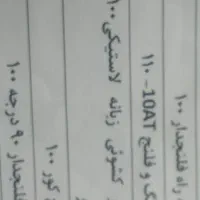 راه فلنجدار ۱۰۰
و فلنج 10AT - ۱۱۰
کشوئی زبانه لاستیکی ۱۰۰
کور ۱۰۰
فلنجدار ۹۰ درجه ۱۰۰